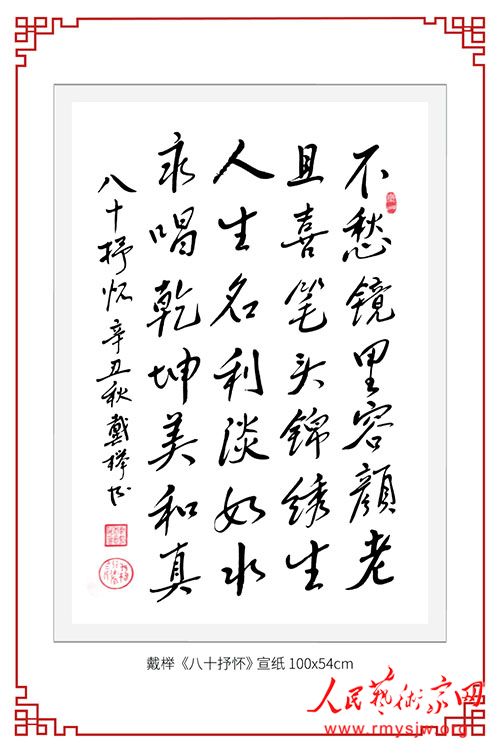 不愁镜里容颜老
且喜笔头锦绣生
人生名利淡如水
永唱乾坤美和真
八十抒怀 辛丑秋 戴榉书
戴榉《八十抒怀》宣纸 100x54cm
人民藝術家网
www.rmysjw.org